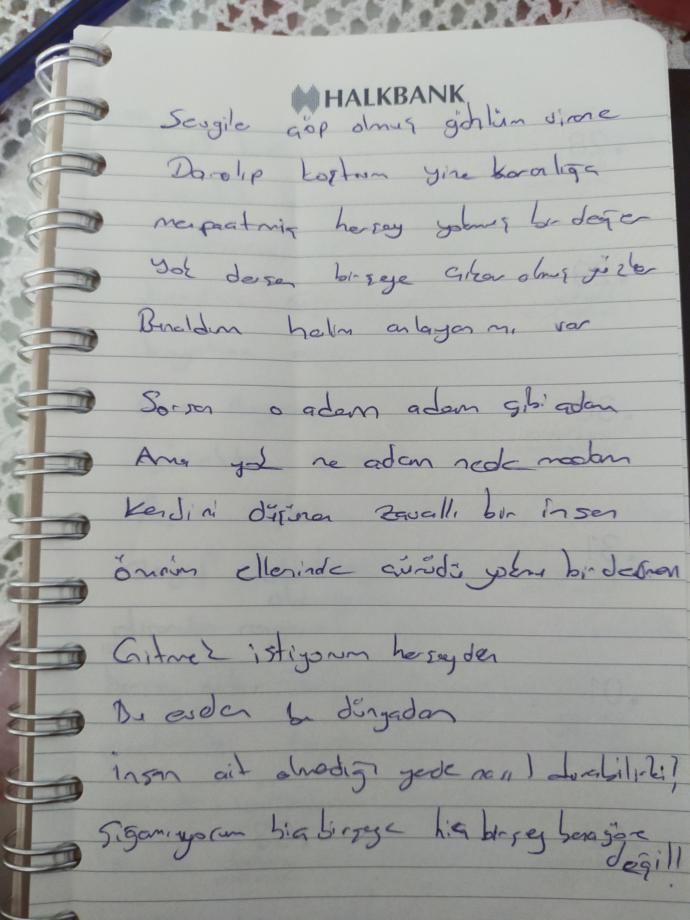 HALKBANK
Sevgile çöp olmuş göhlüm virane
Darılıp koştum yine karanlığa
herşey yokmuş bir değer
Yok dersen birşeye çıkar olmuş gözler
Bunaldım halim anlayan mı var
Sorsan o adam adam gibi adam
Ama yok ne adam nede madam
Kendini düşünen zavallı bir insan
Ömrüm ellerinde çürüdü yokmu bir derman
Gitmek istiyorum herşeyden
Bu evden bu dünyadan
İnsan ait olmadığı yerde nasıl durabilirki?
Sığamıyorum hiç birşeye hiç birşey bana göre
değil!!